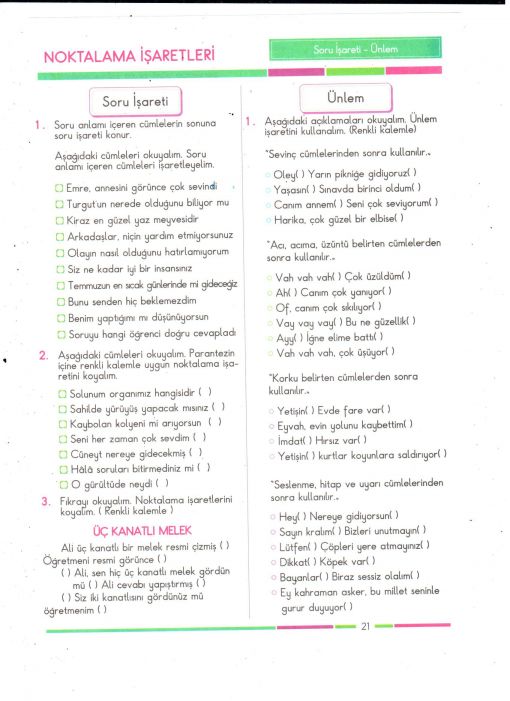 NOKTALAMA İŞARETLERİ
Soru İşareti - Ünlem
Soru İşareti
1. Soru anlamı içeren cümlelerin sonuna
soru işareti konur.
Aşağıdaki cümleleri okuyalım. Soru
anlamı içeren cümleleri işaretleyelim.
Emre, annesini görünce çok sevindi
Turgut'un nerede olduğunu biliyor mu
Kiraz en güzel yaz meyvesidir
Arkadaşlar, niçin yardım etmiyorsunuz
Olayın nasıl olduğunu hatırlamıyorum
Siz ne kadar iyi bir insansınız
Temmuzun en sıcak günlerinde mi gideceğiz
Bunu senden hiç beklemezdim
Benim yaptığımı mı düşünüyorsun
Soruyu hangi öğrenci doğru cevapladı
2. Aşağıdaki cümleleri okuyalım. Parantezin
içine renkli kalemle uygun noktalama işa-
retini koyalım.
Solunum organımız hangisidir ( )
Sahilde yürüyüş yapacak mısınız ( )
Kaybolan kolyeni mi arıyorsun ( )
Seni her zaman çok sevdim ( )
Cüneyt nereye gidecekmiş ( )
Hâlâ soruları bitirmediniz mi ( )
O gürültüde neydi ( )
3. Fıkrayı okuyalım. Noktalama işaretlerini
koyalım. ( Renkli kalemle )
ÜÇ KANATLI MELEK
Ali üç kanatlı bir melek resmi çizmiş ( )
Öğretmeni resmi görünce ( )
( ) Ali, sen hiç üç kanatlı melek gördün
mü ( ) Ali cevabı yapıştırmış ( )
( ) Siz iki kanatlısını gördünüz mü
öğretmenim ( )
Ünlem
1. Aşağıdaki açıklamaları okuyalım. Ünlem
işaretini kullanalım. (Renkli kalemle)
"Sevinç cümlelerinden sonra kullanılır."
Oley( ) Yarın pikniğe gidiyoruz( )
Yaşasın( ) Sınavda birinci oldum( )
Canım annem( ) Seni çok seviyorum( )
Harika, çok güzel bir elbise( )
"Acı, acıma, üzüntü belirten cümlelerden
sonra kullanılır."
Vah vah vah( ) Çok üzüldüm( )
Ah( ) Canım çok yanıyor( )
Of, canım çok sıkılıyor( )
Vay vay vay( ) Bu ne güzellik( )
Ayy( ) İğne elime battı( )
Vah vah vah, çok üşüyor( )
"Korku belirten cümlelerden sonra
kullanılır."
Yetişin( ) Evde fare var( )
Eyvah, evin yolunu kaybettim( )
İmdat( ) Hırsız var( )
Yetişin( ) kurtlar koyunlara saldırıyor( )
"Seslenme, hitap ve uyarı cümlelerinden
sonra kullanılır."
Hey( ) Nereye gidiyorsun( )
Sayın kralım( ) Bizleri unutmayın( )
Lütfen( ) Çöpleri yere atmayınız( )
Dikkat( ) Köpek var( )
Bayanlar( ) Biraz sessiz olalım( )
Ey kahraman asker, bu millet seninle
gurur duyuyor( )
21